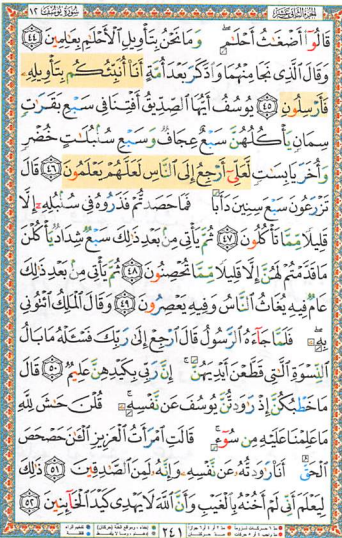 الجزء الثاني عشر سورة يوسف ١٢
قَالُوٓا۟ أَضْغَـٰثُ أَحْلَـٰمٍۢ ۖ وَمَا نَحْنُ بِتَأْوِيلِ ٱلْأَحْلَـٰمِ بِعَـٰلِمِينَ ٤٤
وَقَالَ ٱلَّذِى نَجَا مِنْهُمَا وَٱدَّكَرَ بَعْدَ أُمَّةٍ أَنَا۠ أُنَبِّئُكُم بِتَأْوِيلِهِۦ
فَأَرْسِلُونِ ٤٥ يُوسُفُ أَيُّهَا ٱلصِّدِّيقُ أَفْتِنَا فِى سَبْعِ بَقَرَٰتٍۢ
سِمَانٍۢ يَأْكُلُهُنَّ سَبْعٌ عِجَافٌۭ وَسَبْعِ سُنۢبُلَـٰتٍ خُضْرٍۢ
وَأُخَرَ يَابِسَـٰتٍۢ لَّعَلِّىٓ أَرْجِعُ إِلَى ٱلنَّاسِ لَعَلَّهُمْ يَعْلَمُونَ ٤٦ قَالَ
تَزْرَعُونَ سَبْعَ سِنِينَ دَأَبًۭا فَمَا حَصَدتُّمْ فَذَرُوهُ فِى سُنۢبُلِهِۦٓ إِلَّا
قَلِيلًۭا مِّمَّا تَأْكُلُونَ ٤٧ ثُمَّ يَأْتِى مِنۢ بَعْدِ ذَٰلِكَ سَبْعٌۭ شِدَادٌۭ يَأْكُلْنَ
مَا قَدَّمْتُمْ لَهُنَّ إِلَّا قَلِيلًۭا مِّمَّا تُحْصِنُونَ ٤٨ ثُمَّ يَأْتِى مِنۢ بَعْدِ ذَٰلِكَ
عَامٌۭ فِيهِ يُغَاثُ ٱلنَّاسُ وَفِيهِ يَعْصِرُونَ ٤٩ وَقَالَ ٱلْمَلِكُ ٱئْتُونِى
بِهِۦ ۖ فَلَمَّا جَآءَهُ ٱلرَّسُولُ قَالَ ٱرْجِعْ إِلَىٰ رَبِّكَ فَسْـَٔلْهُ مَا بَالُ
ٱلنِّسْوَةِ ٱلَّـٰتِى قَطَّعْنَ أَيْدِيَهُنَّ ۚ إِنَّ رَبِّى بِكَيْدِهِنَّ عَلِيمٌۭ ٥٠ قَالَ
مَا خَطْبُكُنَّ إِذْ رَٰوَدتُّنَّ يُوسُفَ عَن نَّفْسِهِۦ ۚ قُلْنَ حَـٰشَ لِلَّهِ
مَا عَلِمْنَا عَلَيْهِ مِن سُوٓءٍۢ ۚ قَالَتِ ٱمْرَأَتُ ٱلْعَزِيزِ ٱلْـَٔـٰنَ حَصْحَصَ
ٱلْحَقُّ أَنَا۠ رَٰوَدتُّهُۥ عَن نَّفْسِهِۦ وَإِنَّهُۥ لَمِنَ ٱلصَّـٰدِقِينَ ٥١ ذَٰلِكَ
لِيَعْلَمَ أَنِّى لَمْ أَخُنْهُ بِٱلْغَيْبِ وَأَنَّ ٱللَّهَ لَا يَهْدِى كَيْدَ ٱلْخَآئِنِينَ ٥٢
٢٤١